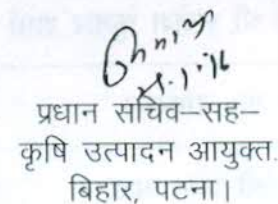 प्रधान सचिव–सह–
कृषि उत्पादन आयुक्त.
बिहार, पटना।